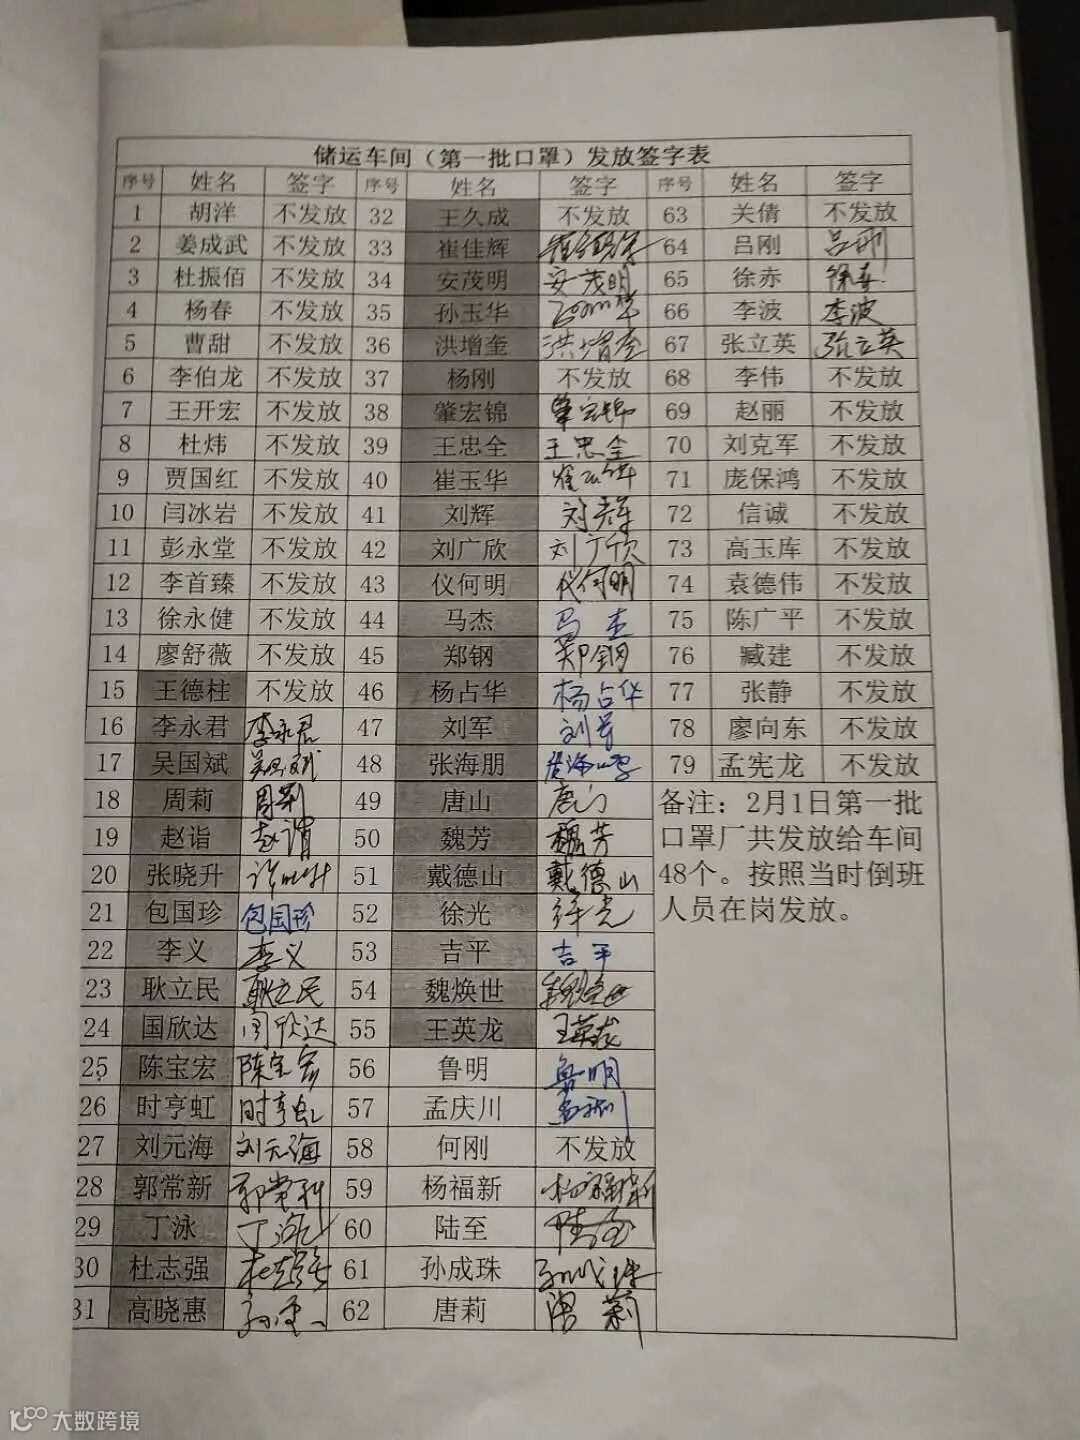 储运车间（第一批口罩）发放签字表
序号 姓名 签字 序号 姓名 签字 序号 姓名 签字
1 胡洋 不发放 32 王久成 不发放 63 关倩 不发放
2 姜成武 不发放 33 崔佳辉 64 吕刚 吕刚
3 杜振佰 不发放 34 安茂明 安茂明 65 徐赤 徐赤
4 杨春 不发放 35 孙玉华 66 李波 李波
5 曹甜 不发放 36 洪增奎 洪增奎 67 张立英 张立英
6 李伯龙 不发放 37 杨刚 不发放 68 李伟 不发放
7 王开宏 不发放 38 肇宏锦 肇宏锦 69 赵丽 不发放
8 杜炜 不发放 39 王忠全 王忠全 70 刘克军 不发放
9 贾国红 不发放 40 崔玉华 崔玉华 71 庞保鸿 不发放
10 闫冰岩 不发放 41 刘辉 刘辉 72 信诚 不发放
11 彭永堂 不发放 42 刘广欣 刘广欣 73 高玉库 不发放
12 李首臻 不发放 43 仪何明 仪何明 74 袁德伟 不发放
13 徐永健 不发放 44 马杰 马杰 75 陈广平 不发放
14 廖舒薇 不发放 45 郑钢 郑钢 76 臧建 不发放
15 王德柱 不发放 46 杨占华 杨占华 77 张静 不发放
16 李永君 李永君 47 刘军 刘军 78 廖向东 不发放
17 吴国斌 吴国斌 48 张海朋 79 孟宪龙 不发放
18 周莉 周莉 49 唐山 唐山
19 赵诣 赵诣 50 魏芳 魏芳
20 张晓升 51 戴德山 戴德山
21 包国珍 包国珍 52 徐光 徐光
22 李义 李义 53 吉平 吉平
23 耿立民 耿立民 54 魏焕世 魏焕世
24 国欣达 国欣达 55 王英龙 王英龙
25 陈宝宏 陈宝宏 56 鲁明 鲁明
26 时亨虹 时亨虹 57 孟庆川
27 刘元海 刘元海 58 何刚 不发放
28 郭常新 郭常新 59 杨福新 杨福新
29 丁泳 丁泳 60 陆至 陆至
30 杜志强 杜志强 61 孙成珠 孙成珠
31 高晓惠 62 唐莉 唐莉
备注：2月1日第一批
口罩厂共发放给车间
48个。按照当时倒班
人员在岗发放。
大数跨境